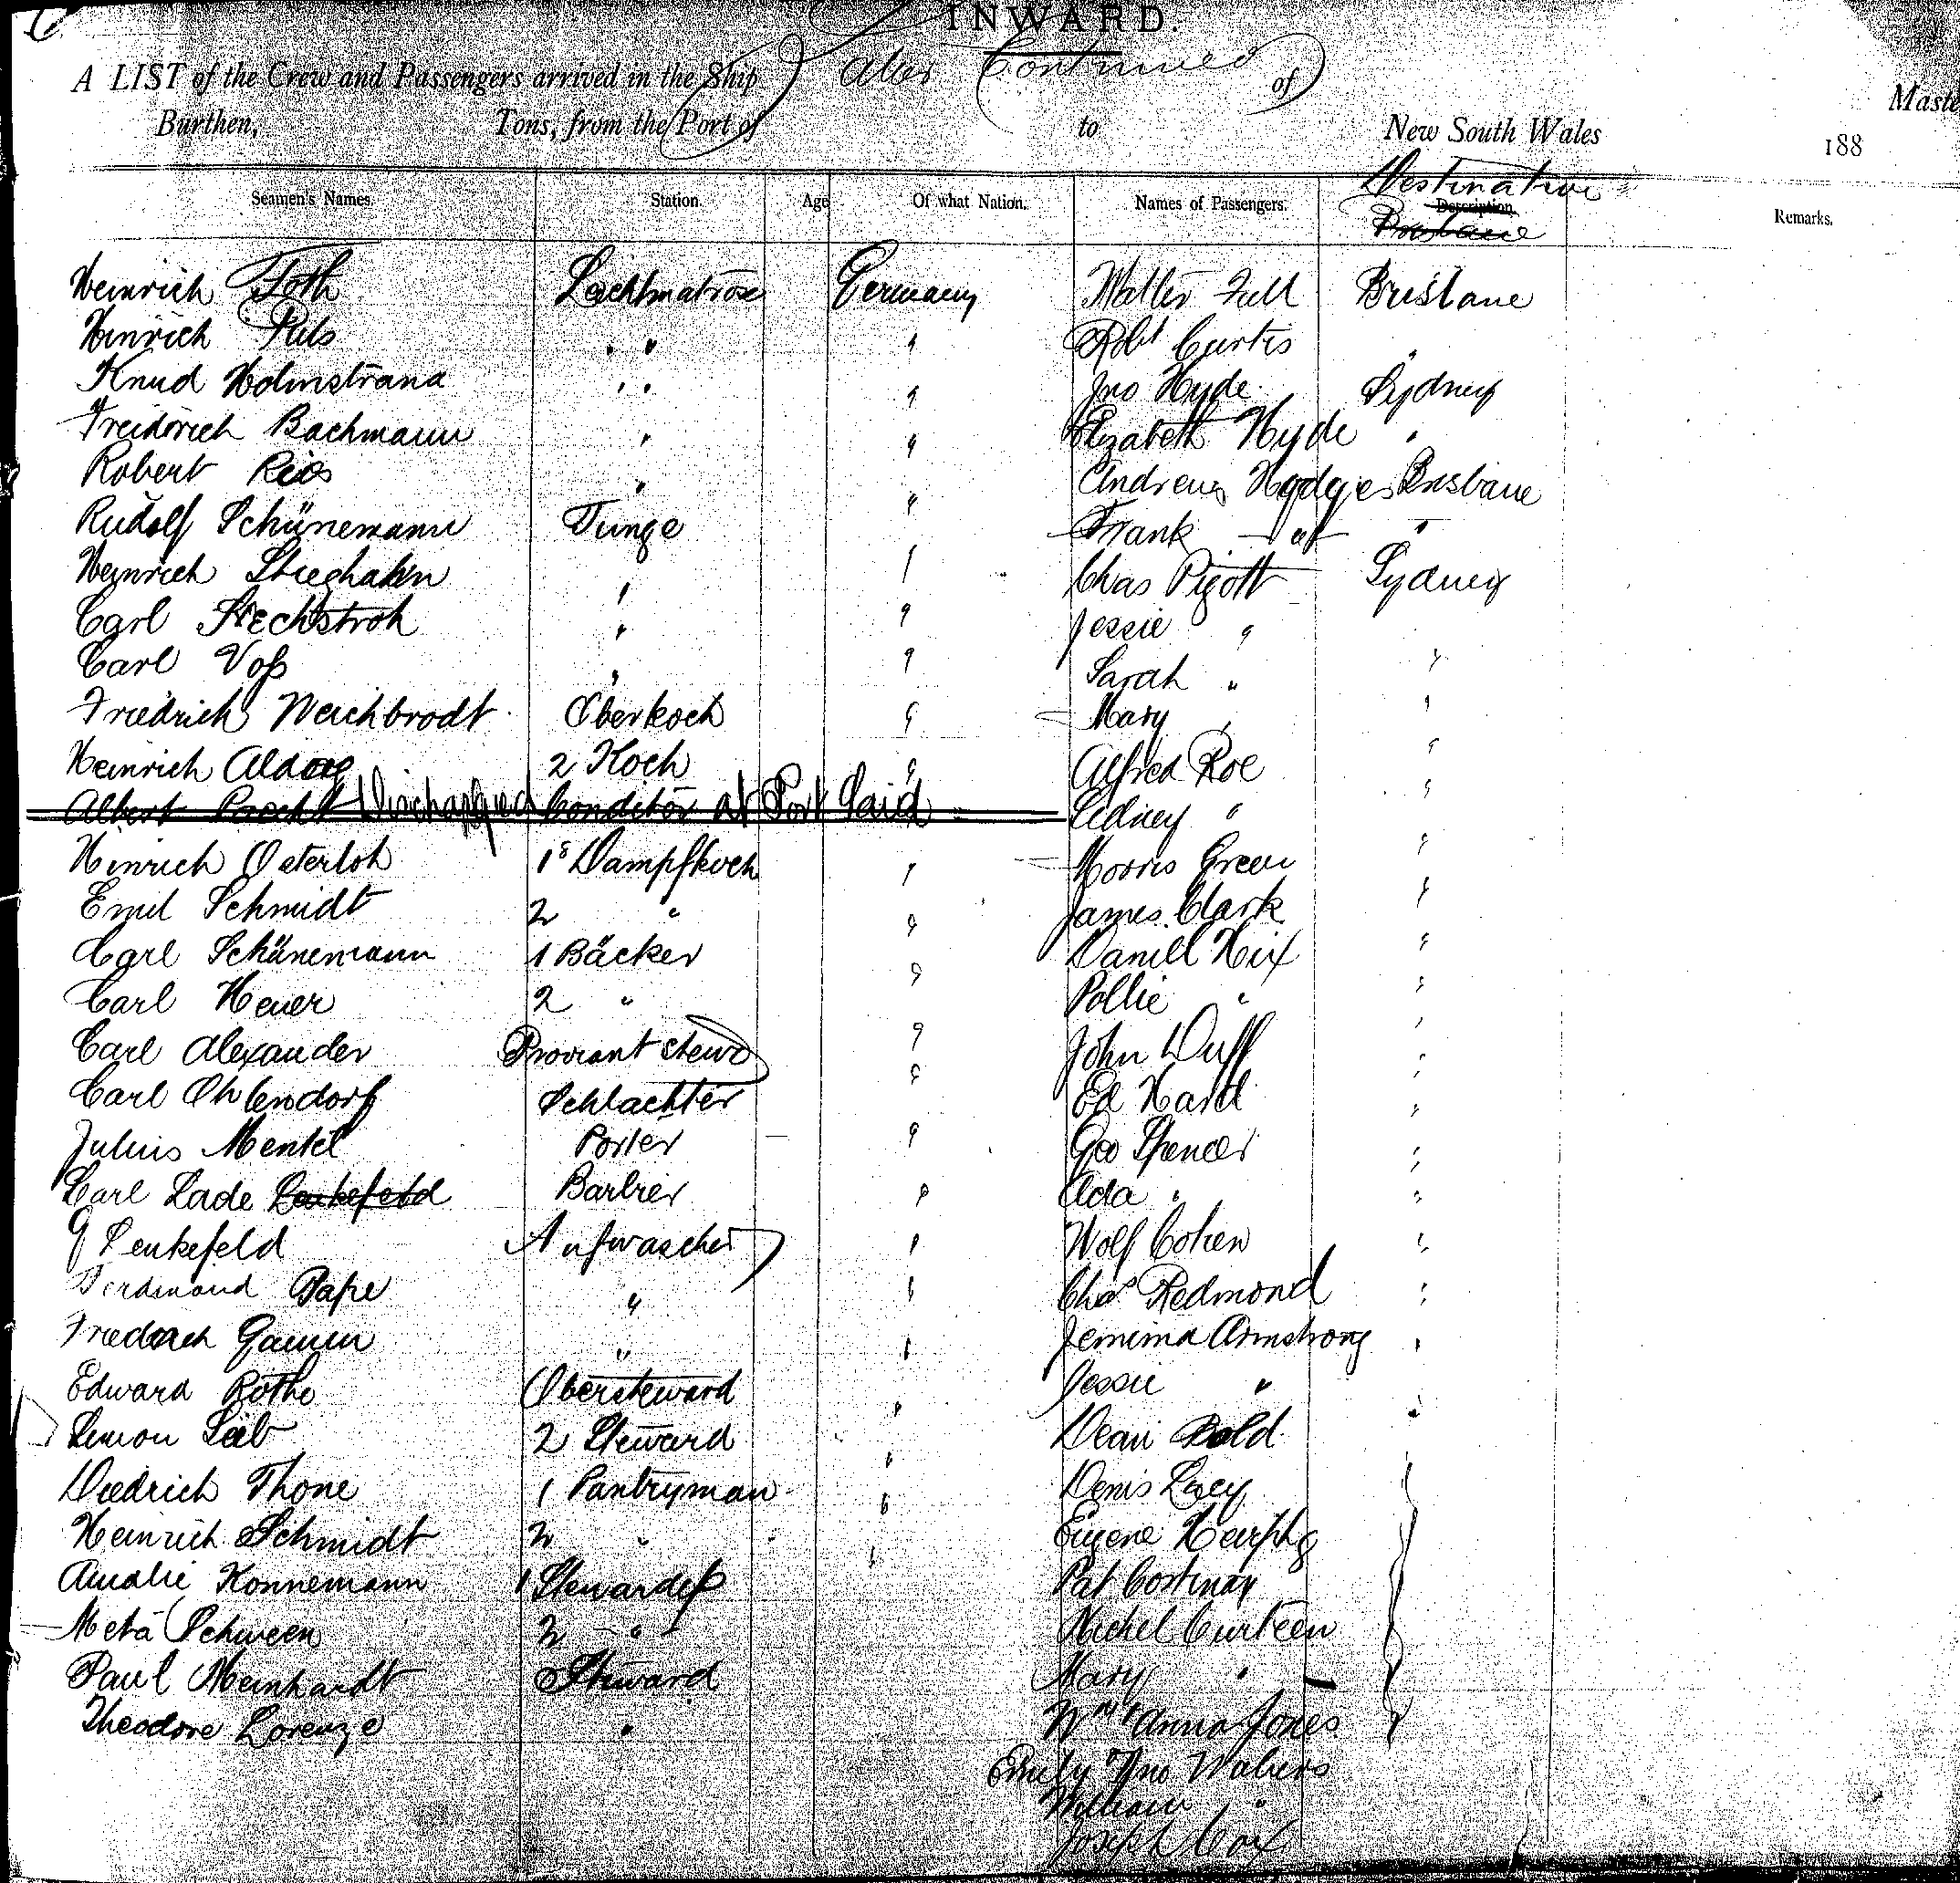 INWARD.
A LIST of the Crew and Passengers arrived in the Ship Continued of Master
Burthen, Tons, from the Port of to New South Wales 188
Destination
Seamen's Names. Station. Age Of what Nation. Names of Passengers. Description Remarks.
Brisbane
Heinrich Toth Leichtmatrose Germany Walter Brisbane
Hinrich Puls " " " Robt Curtis "
Knud Holmstrand " " " Jno Hyde Sydney
Freidrich Bachmann " " Elizabeth Hyde "
Robert Ries " " Andrew Hodges Brisbane
Rudolf Schünemann Junge " Frank "
Heinrich " " Chas Pigott Sydney
Carl Stechstroh " " Jessie "
Carl Voß " " Sarah " "
Friedrich Weichbrodt Oberkoch " Mary " "
Heinrich 2 Koch " Alfred Roe "
Albert Discharged Conditor at Port Said Sidney " "
Hinrich Osterloh 1s Dampfkoch " Morris Green "
Emil Schmidt 2 " " James Clark "
Carl Schünemann 1 Bäcker " Daniell Hix "
Carl Heuer 2 " " Pollie " "
Carl Alexander Proviant Stewd " John Duff "
Carl Ohlendorf Schlachter " Ed Hard "
Julius Mentel Porter " Geo Spencer "
Carl Lade Lenkefeld Barbier " Ada " "
G Lenkefeld Aufwascher " Wolf Cohen "
Ferdinand Pape " " Chas Redmond "
Friedrich Gamm " " Jemima Armstrong "
Edward Rothe Obersteward " Jessie " "
Simon Leib 2 Steward " Dean Bold
Diedrich Thone 1 Pantryman " Denis Lacy
Heinrich Schmidt 2 " " Eugene
Amalie Konnemann 1 Stewardeß Pat
Meta Schween 2 " Michel Curteen
Paul Meinhardt Steward Mary "
Theodore Lorenze " Wm & Anna Jones
Emily & Jno Walters
William "
Joseph Cox